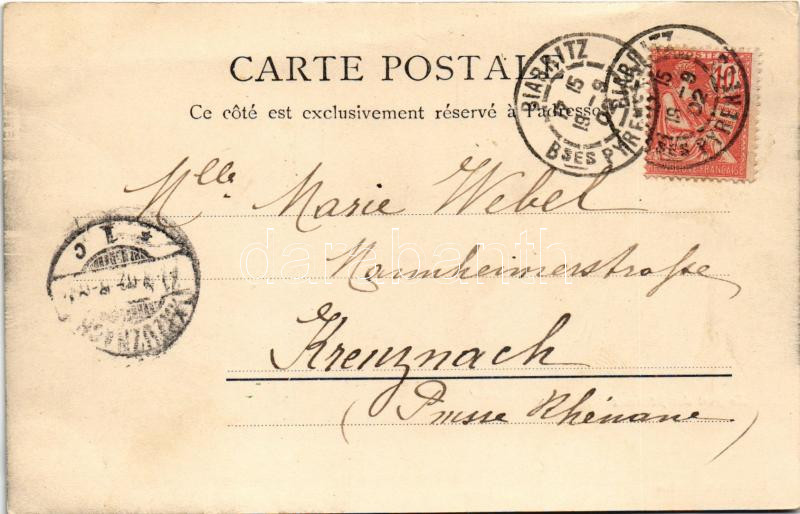 CARTE POSTALE
Ce côté est exclusivement réservé à l'adresse
BIARRITZ
15 15
19-9
02
BSES PYRENEES
BIARRITZ
15
19-9
02
BSES PYRENEES
POSTES
10
REPUBLIQUE FRANÇAISE
Mlle Marie Webel
Mannheimerstraße
Kreuznach
(Prusse Rhénane)
KREUZNACH
* 1 C
darabanth